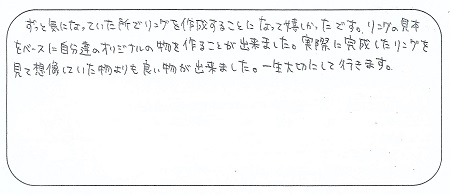 ずっと気になっていた所でリングを作成することになって嬉しかったです。リングの見本
をベースに自分達のオリジナルの物を作ることが出来ました。実際に完成したリングを
見て想像していた物よりも良い物が出来ました。一生大切にして行きます。